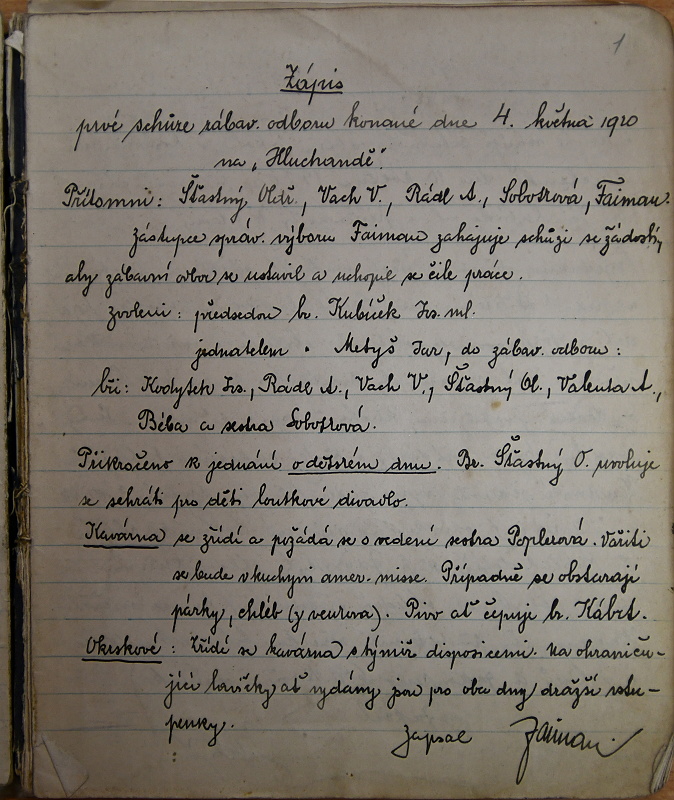 1
Zápis
prvé schůze zábav. odboru konané dne 4. května 1920
na „Hluchandě".
Přítomni: Šťastný Oldř., Vach V., Rádl A., Sobotková, Faiman.
Zástupce správ. výboru Faiman zahajuje schůzi se žádostí,
aby zábavní odbor se ustavil a uchopil se čile práce.
Zvoleni: předsedou br. Kubíček Frs. ml.
jednatelem " Metyš Jar, do zábav. odboru:
bři: Kodytek Frs., Rádl A., Vach V., Šťastný Ol., Valenta A.,
Béba a sestra Sobotková.
Přikročeno k jednání o dětském dnu. Br. Šťastný O. uvoluje
se sehráti pro děti loutkové divadlo.
Kavárna se zřídí a požádá se o vedení sestra Poplerová. Vařiti
se bude v kuchyni amer. misse. Případně se obstarají
párky, chléb (y veurova). Pivo ať čepuje br. Kábrt.
Okrskové: Zřídí se kavárna s týmiž disposicemi. Na ohraniču-
jící lavičky ať vydány jsou pro oba dny dražší vstu-
penky.
Zapsal Faiman